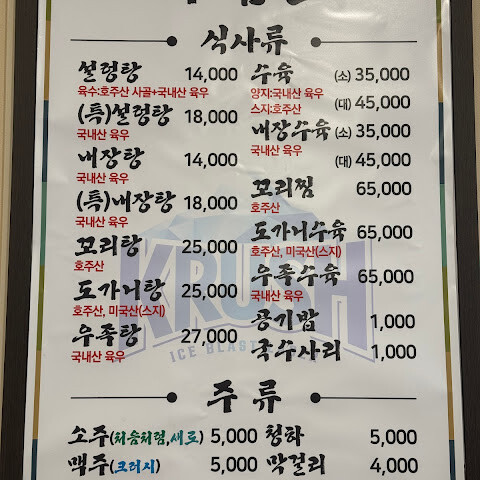 식사류
설렁탕 14,000
육수:호주산 사골+국내산 육우
(특)설렁탕 18,000
국내산 육우
내장탕 14,000
국내산 육우
(특)내장탕 18,000
국내산 육우
꼬리탕 25,000
호주산
도가니탕 25,000
호주산, 미국산(스지)
우족탕 27,000
국내산 육우
수육 (소) 35,000
양지:국내산 육우
스지:호주산 (대) 45,000
내장수육 (소) 35,000
국내산 육우
(대) 45,000
꼬리찜 65,000
호주산
도가니수육 65,000
호주산, 미국산(스지)
우족수육 65,000
국내산 육우
공기밥 1,000
국수사리 1,000
KRUSH
ICE BLAST
주 류
소주(처음처럼,새로) 5,000
맥주(크러시) 5,000
청하 5,000
막걸리 4,000